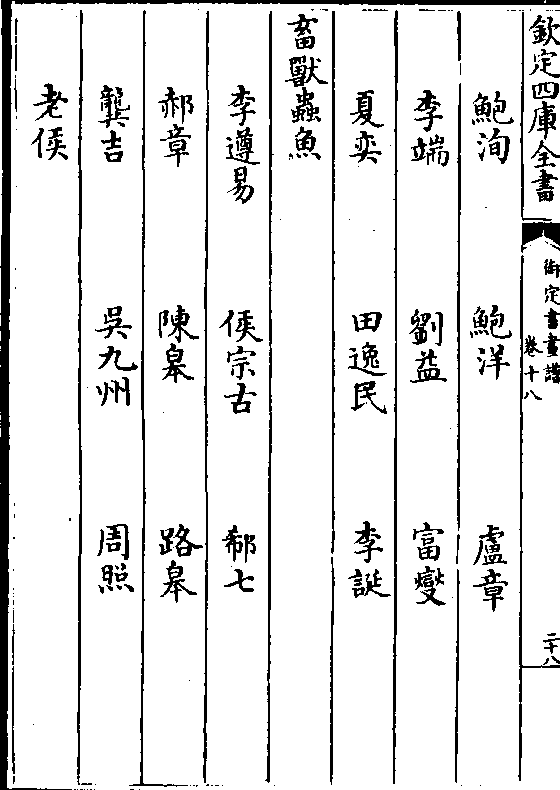 欽定四庫全書
御定書畫譜
卷十八
二十八
鮑洵 鮑洋 盧章
李端 劉益 富燮
夏奕 田逸民 李誕
畜獸蟲魚
李遵易 侯宗古 郗七
郝章 陳皋 路皋
龔吉 吳九州 周照
老侯